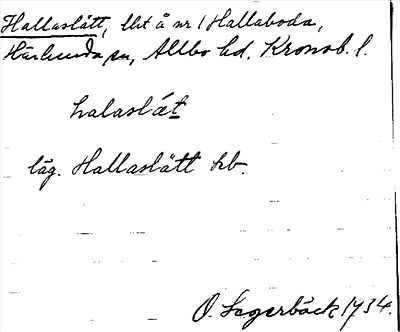 Hallaslätt, lht å nr 1 Hallaboda,
Härlunda sn, Allbo hd. Kronob. l.
halaslæt
läg. Hallaslätt hb.
O. Lagerbäck 1934.